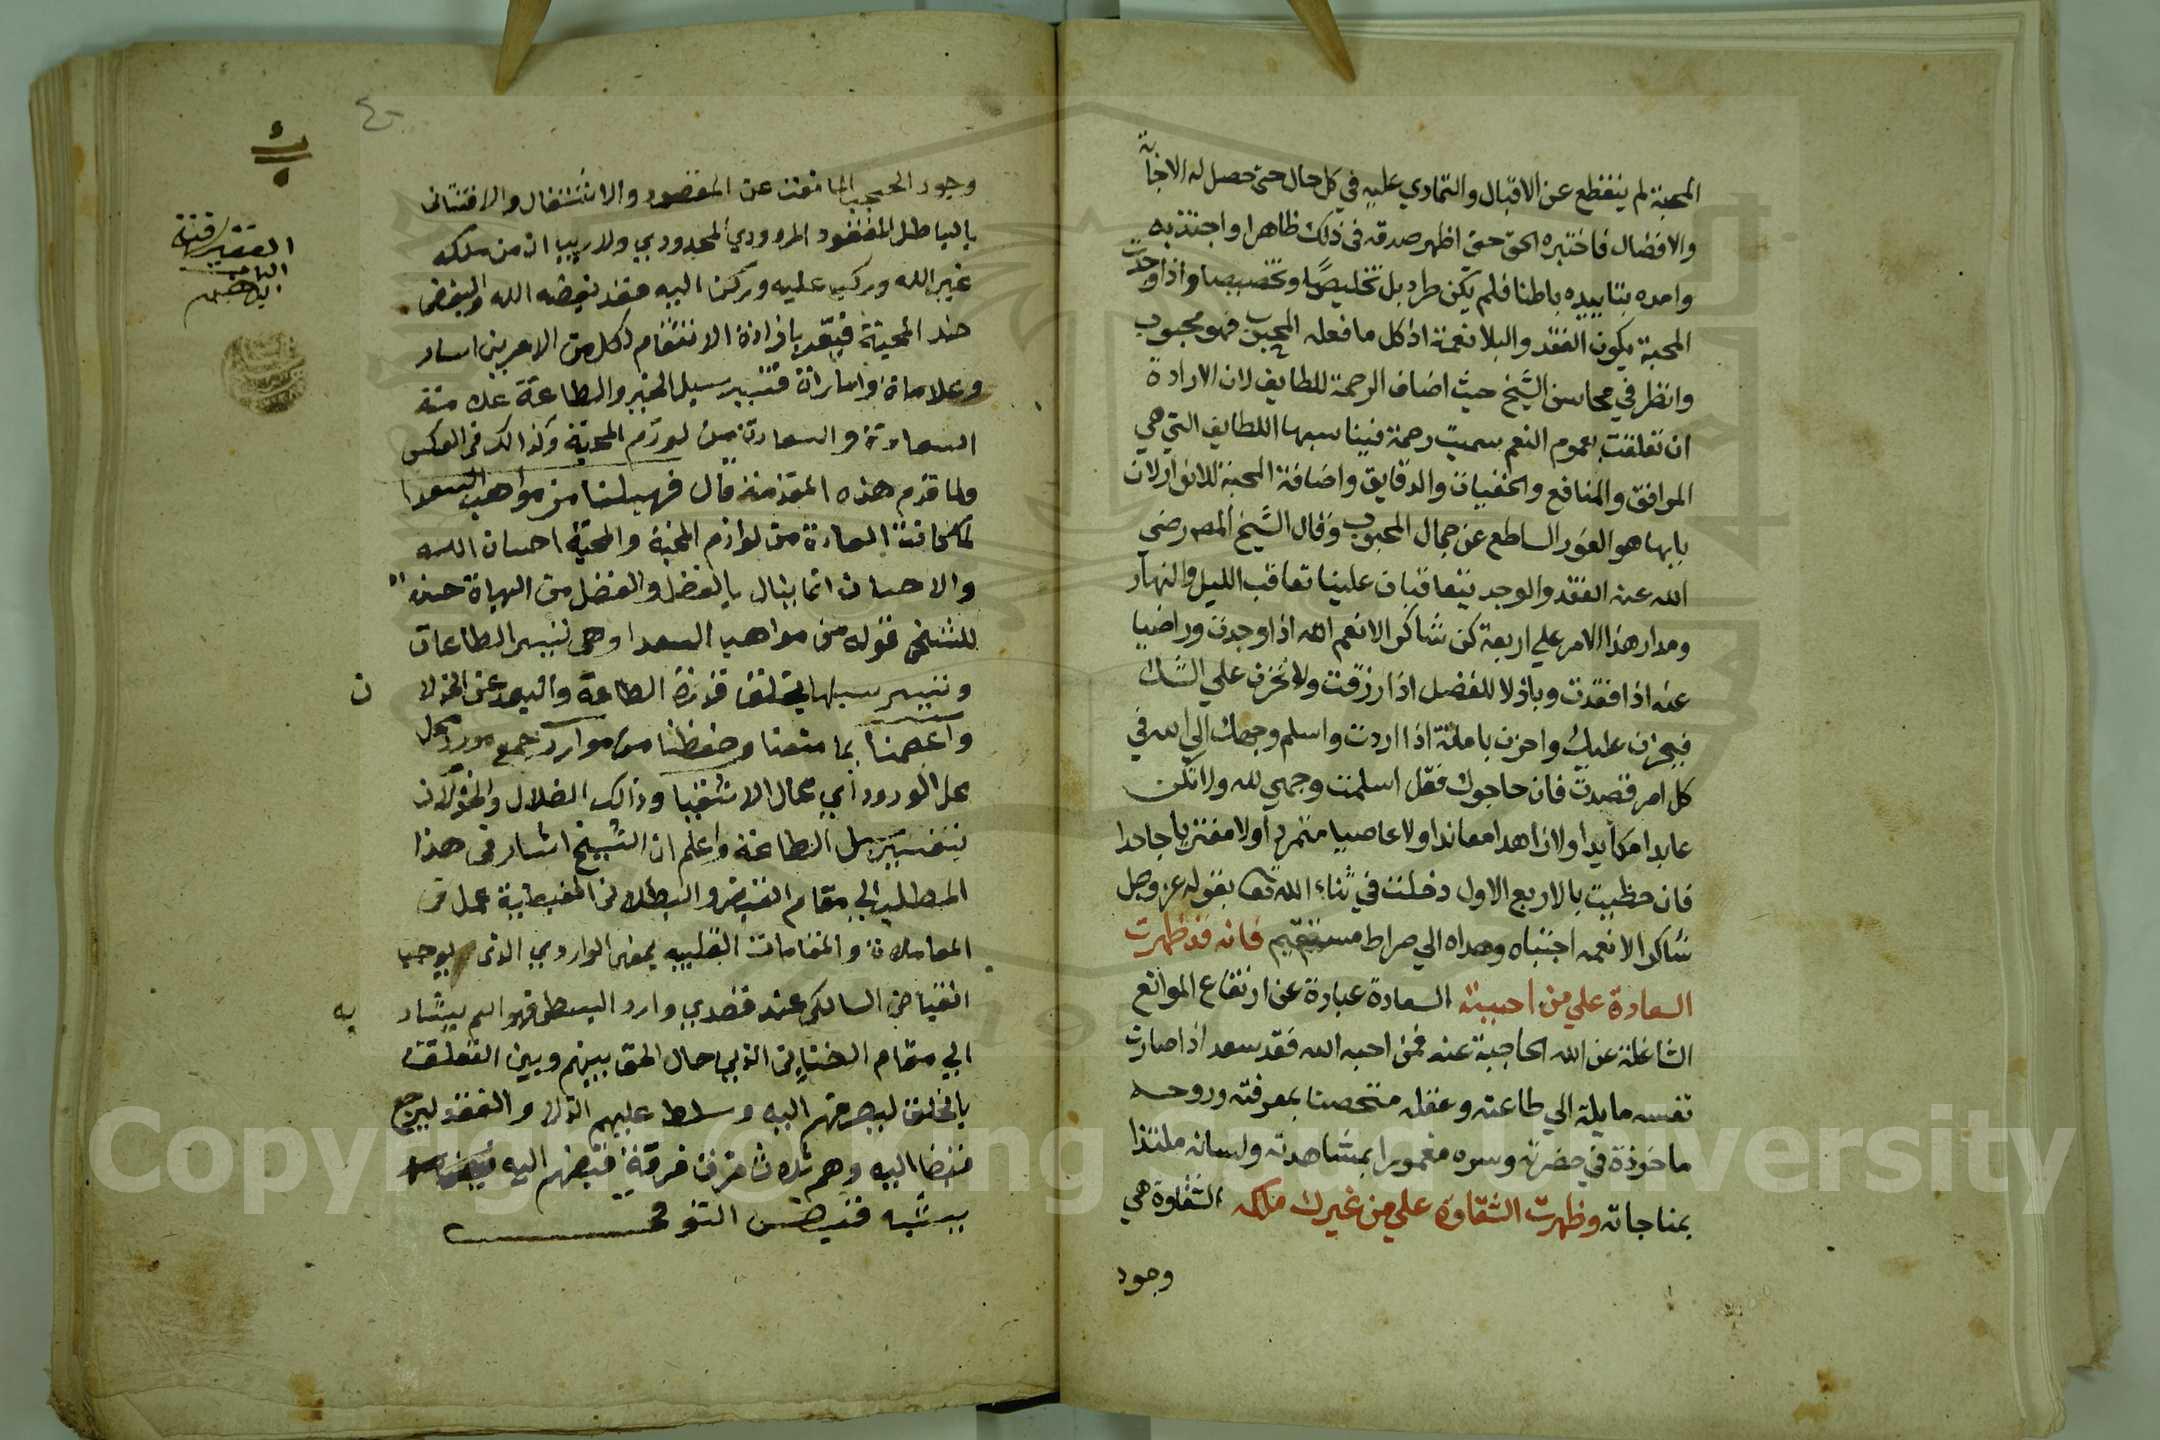 المحبة لم ينقطع عن الاقبال والتمادي عليه في كل حال حتى حصل له الاجابة
والافضال فاختبره الحق حتى اظهر صدقه في ذلك ظاهرا واجتذبه
وامده بتاييده باطنا فلم يكن طرد بل تخليصًا وتخصيصا واذا وجدت
المحبة يكون الفقد والبلا نعمة اذ كل ما فعله المحبوب فهو محبوب
وانظر في محاسن الشيخ حيث اضاف الرحمة للطايف لان الارادة
ان تعلقت بعموم النعم سميت رحمة فيناسبها اللطايف التي هي
المرافق والمنافع والخفيات والدقايق واضافة المحبة للانوار لان
بابها هو النور الساطع عن جمال المحبوب وقال الشيخ المص رضي
الله عنه الفقد والوجد يتعاقبان علينا تعاقب الليل والنهار
ومدار هذا الامر علي اربعة كن شاكرا لانعم الله اذا وجدت وراضيا
عنه اذا فقدت وباذلا للفضل اذا رزقت ولا تحزن علي الشك
فيحزن عليك واحزن باملة اذا اردت واسلم وجهك الي الله في
كل امر قصدت فان حاجوك فقل اسلمت وجهي لله ولا تكن
عابدا مكايدا ولا زاهدا معاندا ولا عاصيا متمردا ولا مفتريا جاحدا
فان حظيت بالاربع الاول دخلت في ثناء الله تعا بقوله عز وجل
شاكرا لانعمه اجتباه وهداه الي صراط مستقيم فانه قد ظهرت
السعادة علي من احببته السعادة عبارة عن ارتفاع الموانع
الشاغلة عن الله الحاجبة عنه فمن احبه الله فقد سعد اذا صارت
نفسه مايلة الي طاعته وعقله متحصنا بمعرفته وروحه
ماخوذة في حضرته وسره مغمورا بمشاهدته ولسانه ملتذا
بمناجاته وظهرت الشقاوة علي من غيرك ملكه الشقاوة هي
وجود
وجود الحجب المانعة عن المقصود والاشتغال والافتتان
بالباطل المفقود المردودي المحدودي ولا ريب ان من ملكه
غير الله وركب عليه وركن اليه فقد يغضه الله والبغض
ضد المحبة فيعد بافرادة الانتقام لكل من الامرين اسار
وعلاماة وامارات فتيسير سبيل الخير والطاعة علامة
السعادة والسعادة من لوزم المحبة وكذالك في العكس
ولما قدم هذه المقدمة قال فهب لنا من مواهب السعدا
لما كانت السعادة من لوازم المحبة والمحبة احسان الله
والاحسان انما ينال بالفضل والفضل من الهباة حسن
للشيخ قوله من مواهب السعدا وهي تيسر الطاعات
وتيسر سبلها بخلق قدرة الطاعة والبعد عن الخذلا
ن
واعصمنا بما منعتنا وحفظنا من موارد جمع مورد محل
عل الورود أي محال الاشقيا وذالك الضلال والخذلان
بتعسير سبل الطاعة واعلم ان الشيخ اشار في هذا
المطلب الي مقام القبض والبسط
المعاملات والمقامات القلبيه يعني الواردي الذي يوجب
انقباض السالك عند قصدي وارد البسط فهو اسم يشار
به
الي مقام الضناين الذين حال الحق بينهم وبين التعلق
بالخلق ليصرفهم اليه وسلط عليهم الذلا والفقد ليرجع
قبضا اليه وهم ثلاث فرق فرقة قبضهم اليه
يشبه قبض التوفي
الفقير